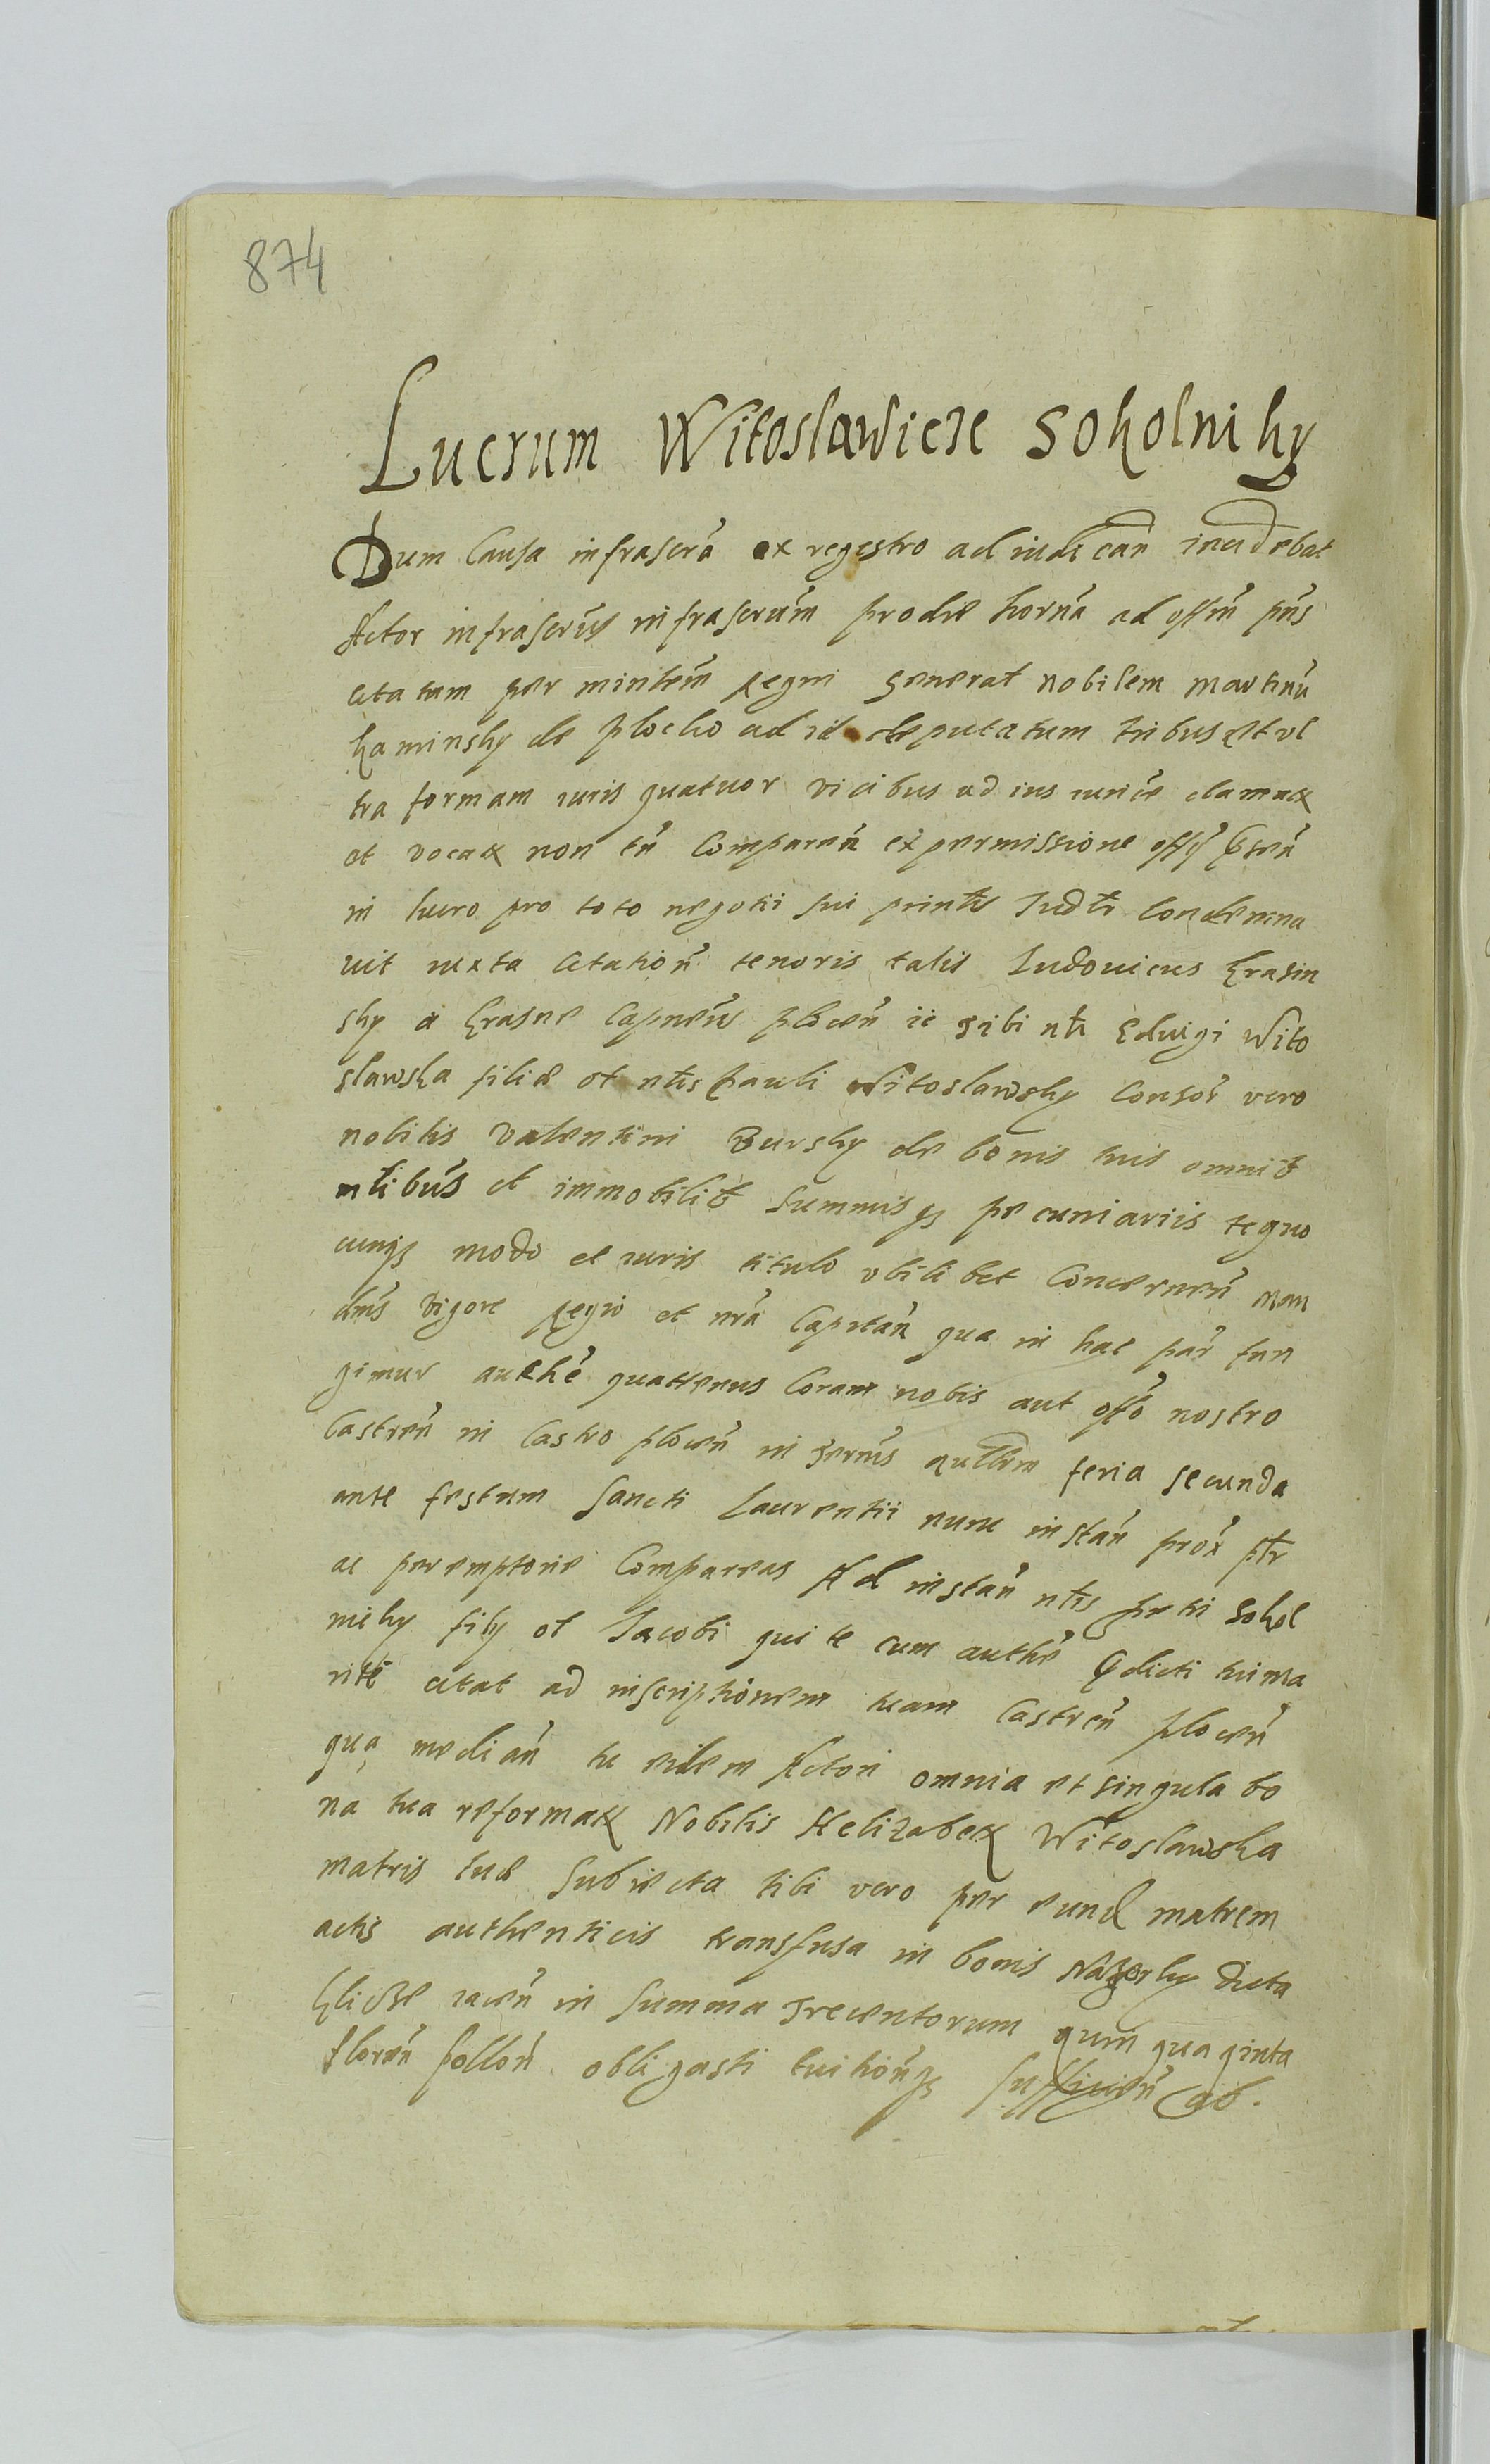 874
Lucrum Witoslawicze Sokolniky
Dum Causa infrascrā ex regestro ad iudican̄ incidebat
Actor infrascrūs infrascrūm pro die horna ad offm̄ pn̄s
citatum per mintēm Regni generat nobilem Martinū
Kaminsky de Plocko ad id deputatum tribus et vl
tra formam iuris quatuor vicibus ad ius iurice clamatɤ
et vocatɤ non tn̄ Comparen̄ ex permissione offy pten̄
in lucro pro toto negotii sui prints Iudtr Condemna
uit iuxta Citation̄ tenoris talis Ludouicus Krasin
sky a Krasne Capneūs plocen̄ ic Tibi nti Eduigi Wito
slawska filiæ ol ntis Pauli Witoslawsky Consor̄ vero
nobilis Valentini Bursky de bonis tuis omnib
mtibus et immobilib Summisqȝ pecuniariis te quo
cunqȝ modo et iuris titulo vbilibet Concernen̄ man
dm̄s vigore Regio et nrā Capitan̄ qua in hac par̄ fun
gimur authē quattenus Coram nobis aut offō nostro
Castren̄ in Castro plocen̄ in termīs qutbm feria secunda
ante festum Sancti Laurentii nunc instan̄ prox̄ ptr
ac peremptorie Compareas Ad instan̄ ntis Petri Sokol
nicky fily ol Iacobi qui te cum authē pdicti tui ma
riti citat ad inscriptionem tuam Castren̄ plocen̄
qua median̄ tu eidem Actori omnia et singula bo
na tua reformatɤ Nobilis Helizabetɤ Witoslawska
matris tuæ Subiecta tibi vero per eund matrem
actis authenticis transfusa in bonis dicta
Kliczse iacen̄ in Summa Trecentorum quinquaginta
floren̄ pollon̄ obligasti tuitionqȝ sufficien̄ ab.